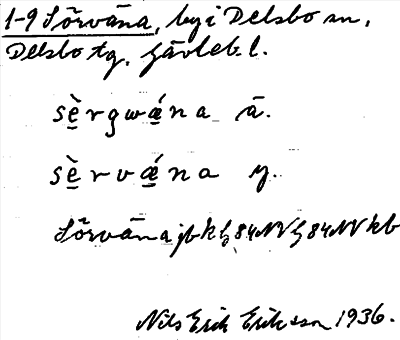 1-9 Sörvåna, by i Delsbo sn,
Delsbo tg, Gävleb. l.
sè̱rgwǽ̱na ä.
sè̱rvǽ̱na y.
Sörvåna jbkG84NV G84NV kb
Nils Erik Eriksson 1936.